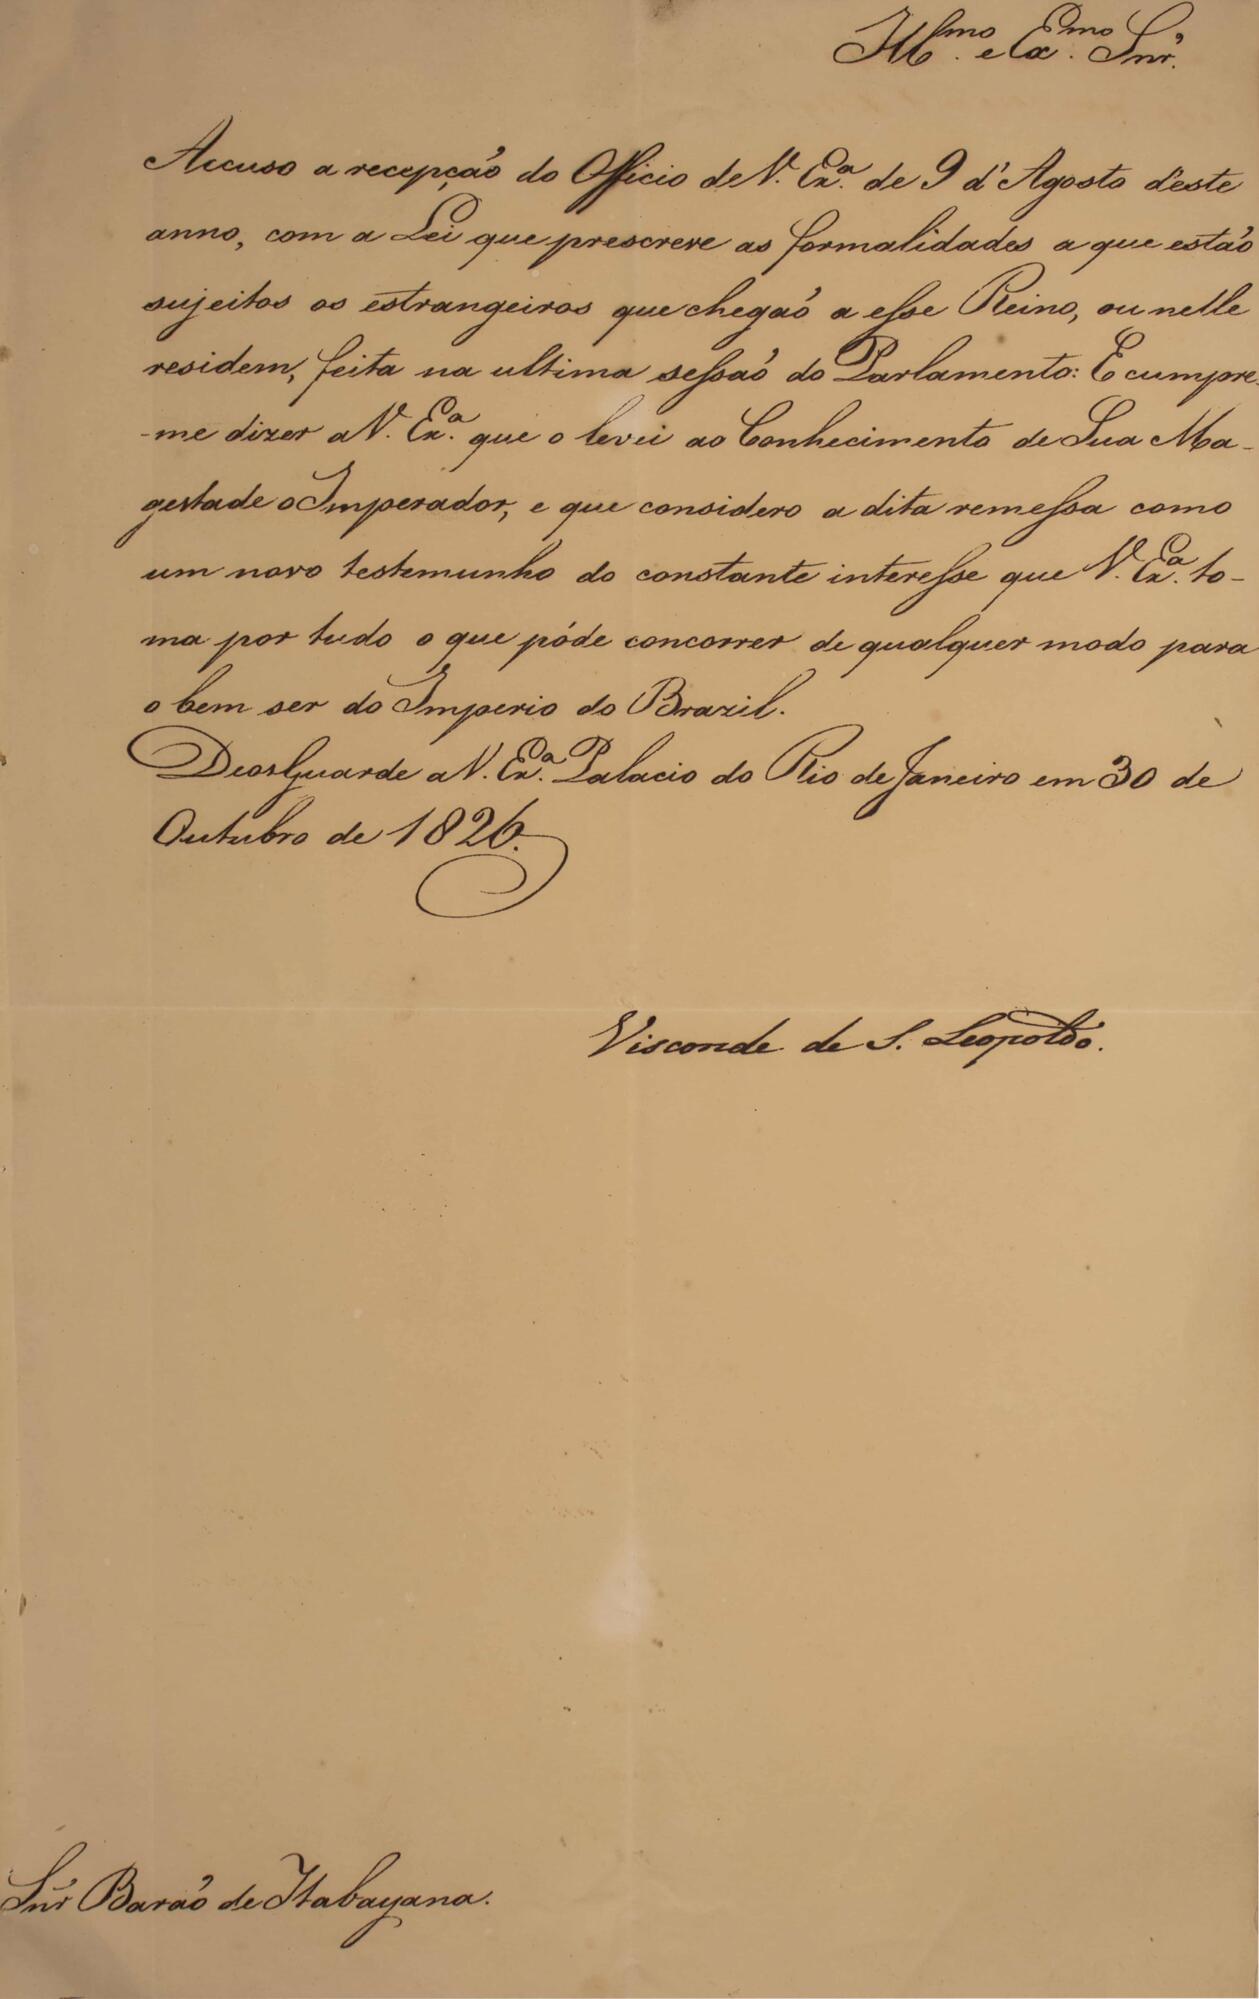 Illmo. e Exmo. Snr.
Accuso a recepção do Officio de V. Exa. de 9 d'Agosto d'este
anno, com a Lei que prescreve as formalidades a que estão
sujeitos os estrangeiros que chegaõ a esse Reino, ou nelle
residem, feita na ultima sessaõ do Parlamento: E cumpre-
-me dizer a V. Exa. que o levei ao Conhecimento de Sua Ma-
gestade o Imperador, e que considero a dita remessa como
um novo testemunho do constante interesse que V. Exa. to-
ma por tudo o que póde concorrer de qualquer modo para
o bem ser do Imperio do Brazil.
Deos Guarde a V. Exa. Palacio do Rio de Janeiro em 30 de
Outubro de 1826.
Visconde de S. Leopoldo.
Snr Barão de Itabayana.